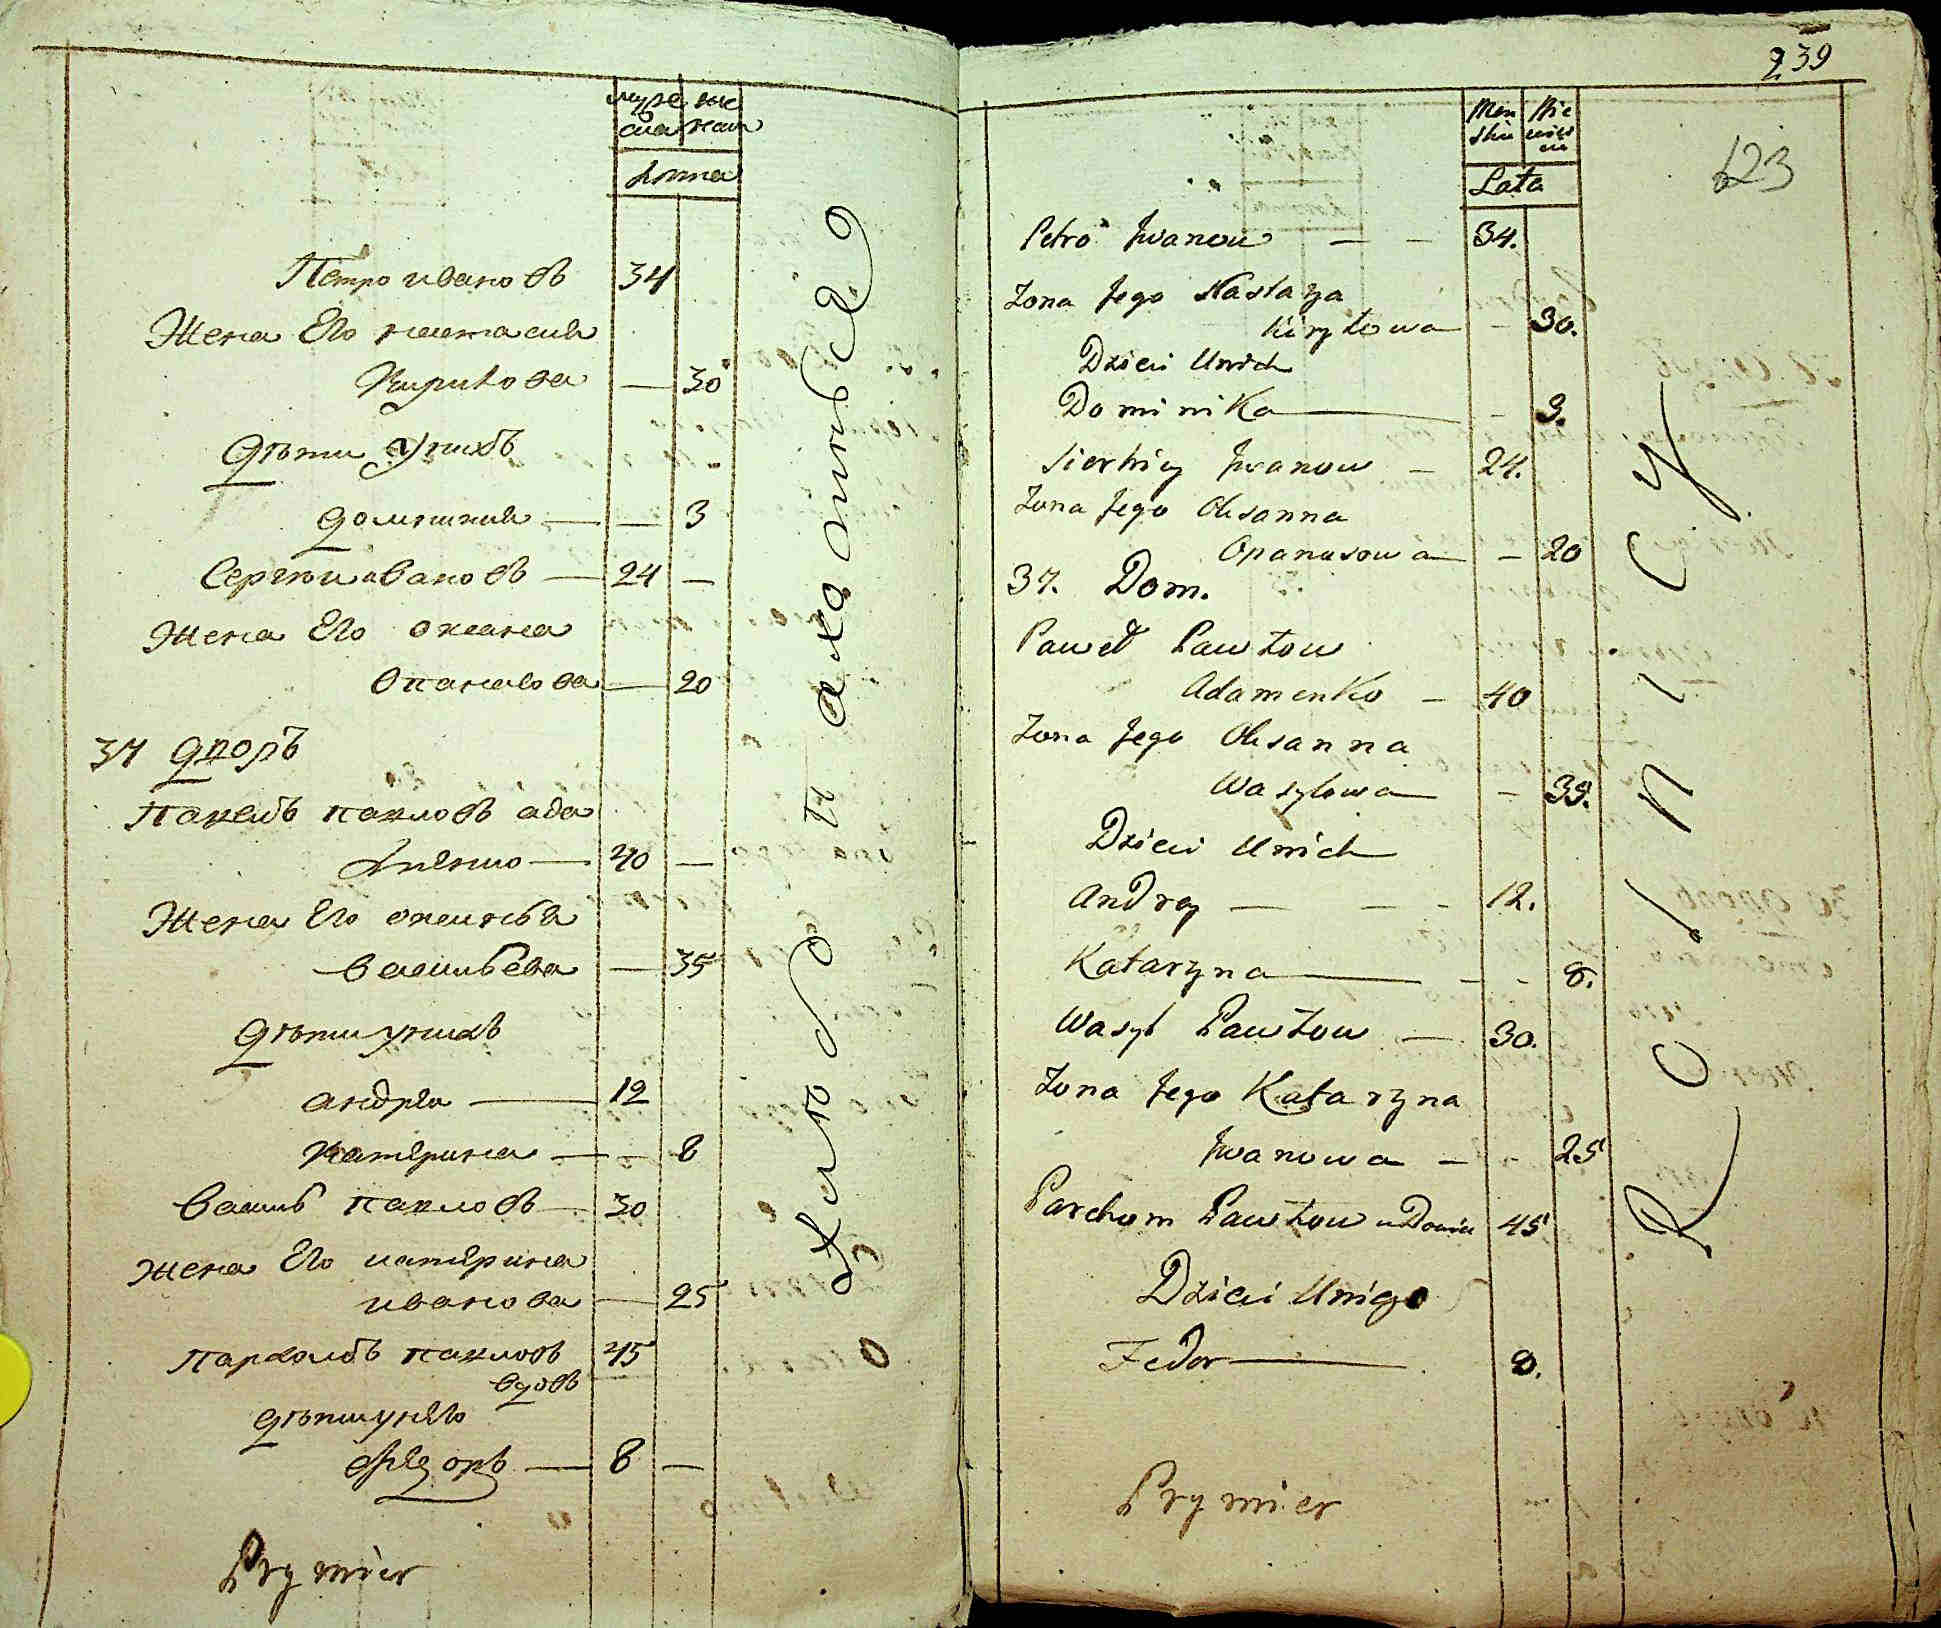 муже же
ска ская
лѣта
Петро ивановъ 34
Жена Его настасия
Кирилова — 30
Дѣти Унихъ
доминика — — 3
Сергѣи ивановъ — 24 —
Жена Его оксана
Опанасова — 20
37 дворъ
Павелъ павловъ ада
менко — 40 —
Жена Его оксинья
васильева — 35
Дѣти унихъ
андреи — 12
катерина — — 8
василь павловъ — 30
жена Его катерина
иванова — 25
пархомъ павловъ 45
вдовъ
дѣти унего
федоръ — 8 —
Prymier
239
123
Męz Nie
skie wies
cie
Lata
Petro Iwanow — — 34.
Zona Jego Nastazya
Kiryłowa — 30.
Dzieci Unich
Dominika — - 3.
Sierhiey Iwanow — 24.
Zona Jego Oksanna
Opanasowa — 20
37. Dom.
Paweł Pawłow
Adamenko — 40
Zona Jego Oksanna
Wasylowa — 35.
Dzieci Unich
Andrey — — - 12.
Kataryna — - - 8.
Wasyl Pawłow — 30.
Zona Jego Kataryna
Iwanowa — - 25
Parchom Pawłow wdowiec 45
Dzieci Uniego
Fedor — 8.
Prymier
R O L N I C Y